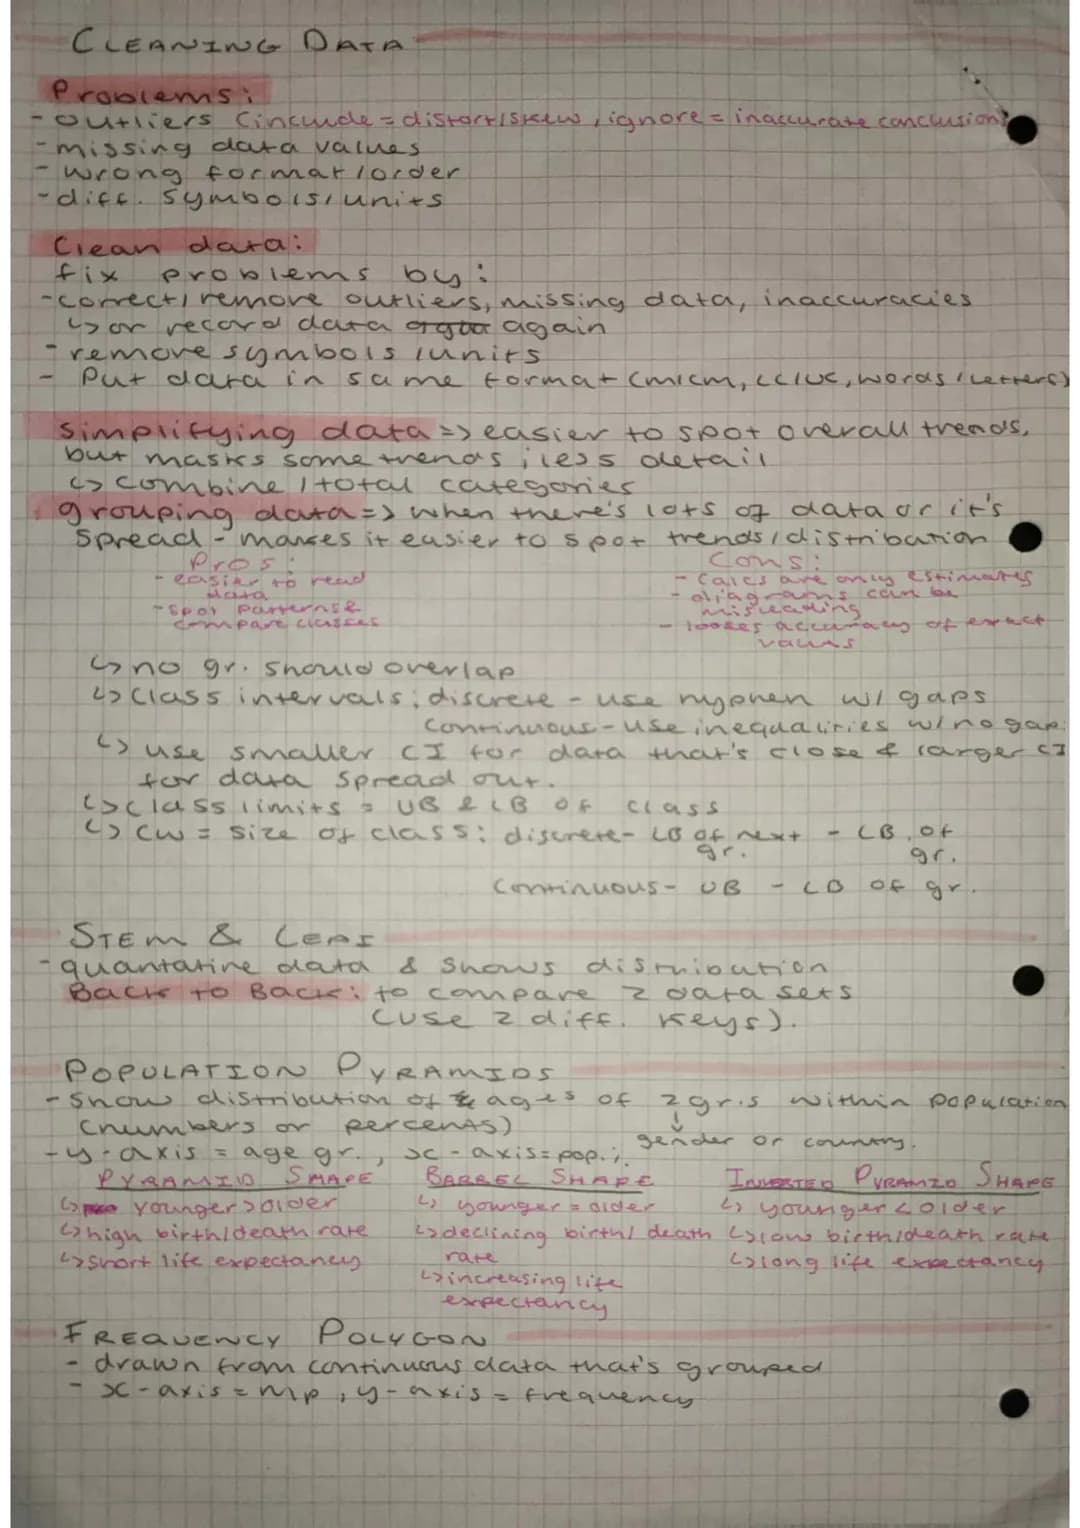 CLEANING DATA
Problems:
- outliers (include = distort/skew, ignore = inaccurate conclusion)
- missing data values
- wrong format/order
- diff. symbols/units
Clean data:
fix problems by:
- correct/remove outliers, missing data, inaccuracies
↳ or record data again
- remove symbols/units
- Put data in same format (m/cm, LC/UC, words/letters)
Simplifying data => easier to spot overall trends,
but masks some trends; less detail
↳ combine/total categories
grouping data => when there's lots of data or it's
spread - makes it easier to spot trends/distribution
Pros:
- easier to read
data
- spot patterns &
compare classes
Cons:
- calcs are only estimates
- diagrams can be
misleading
- looses accuracy of exact
values
↳ no gr. should overlap
↳ class intervals: discrete - use hyphen w/ gaps
continuous - use inequalities w/ no gap
↳ use smaller CI for data that's close & larger CI
for data spread out.
↳ class limits = UB & LB of class
↳ CW = size of class: discrete - LB of next - LB. of
gr. gr.
Continuous - UB - LB of gr.
STEM & LEAF
- quantative data & shows distribution
Back to Back: to compare 2 data sets
(use 2 diff. keys).
POPULATION PYRAMIDS
- show distribution of ages of 2 gr.s within population
(numbers or percents)
gender or country.
- y-axis = age gr., x-axis = pop.;
PYRAMID SHAPE
↳ younger > older
↳ high birth/death rate
↳ short life expectancy
BARREL SHAPE
↳ younger = older
↳ declining birth/death
rate
↳ increasing life
expectancy
INVERTED PYRAMID SHAPE
↳ younger < older
↳ low birth/death rate
↳ long life expectancy
FREQUENCY POLYGON
- drawn from continuous data that's grouped
- x-axis = mp, y-axis = frequency